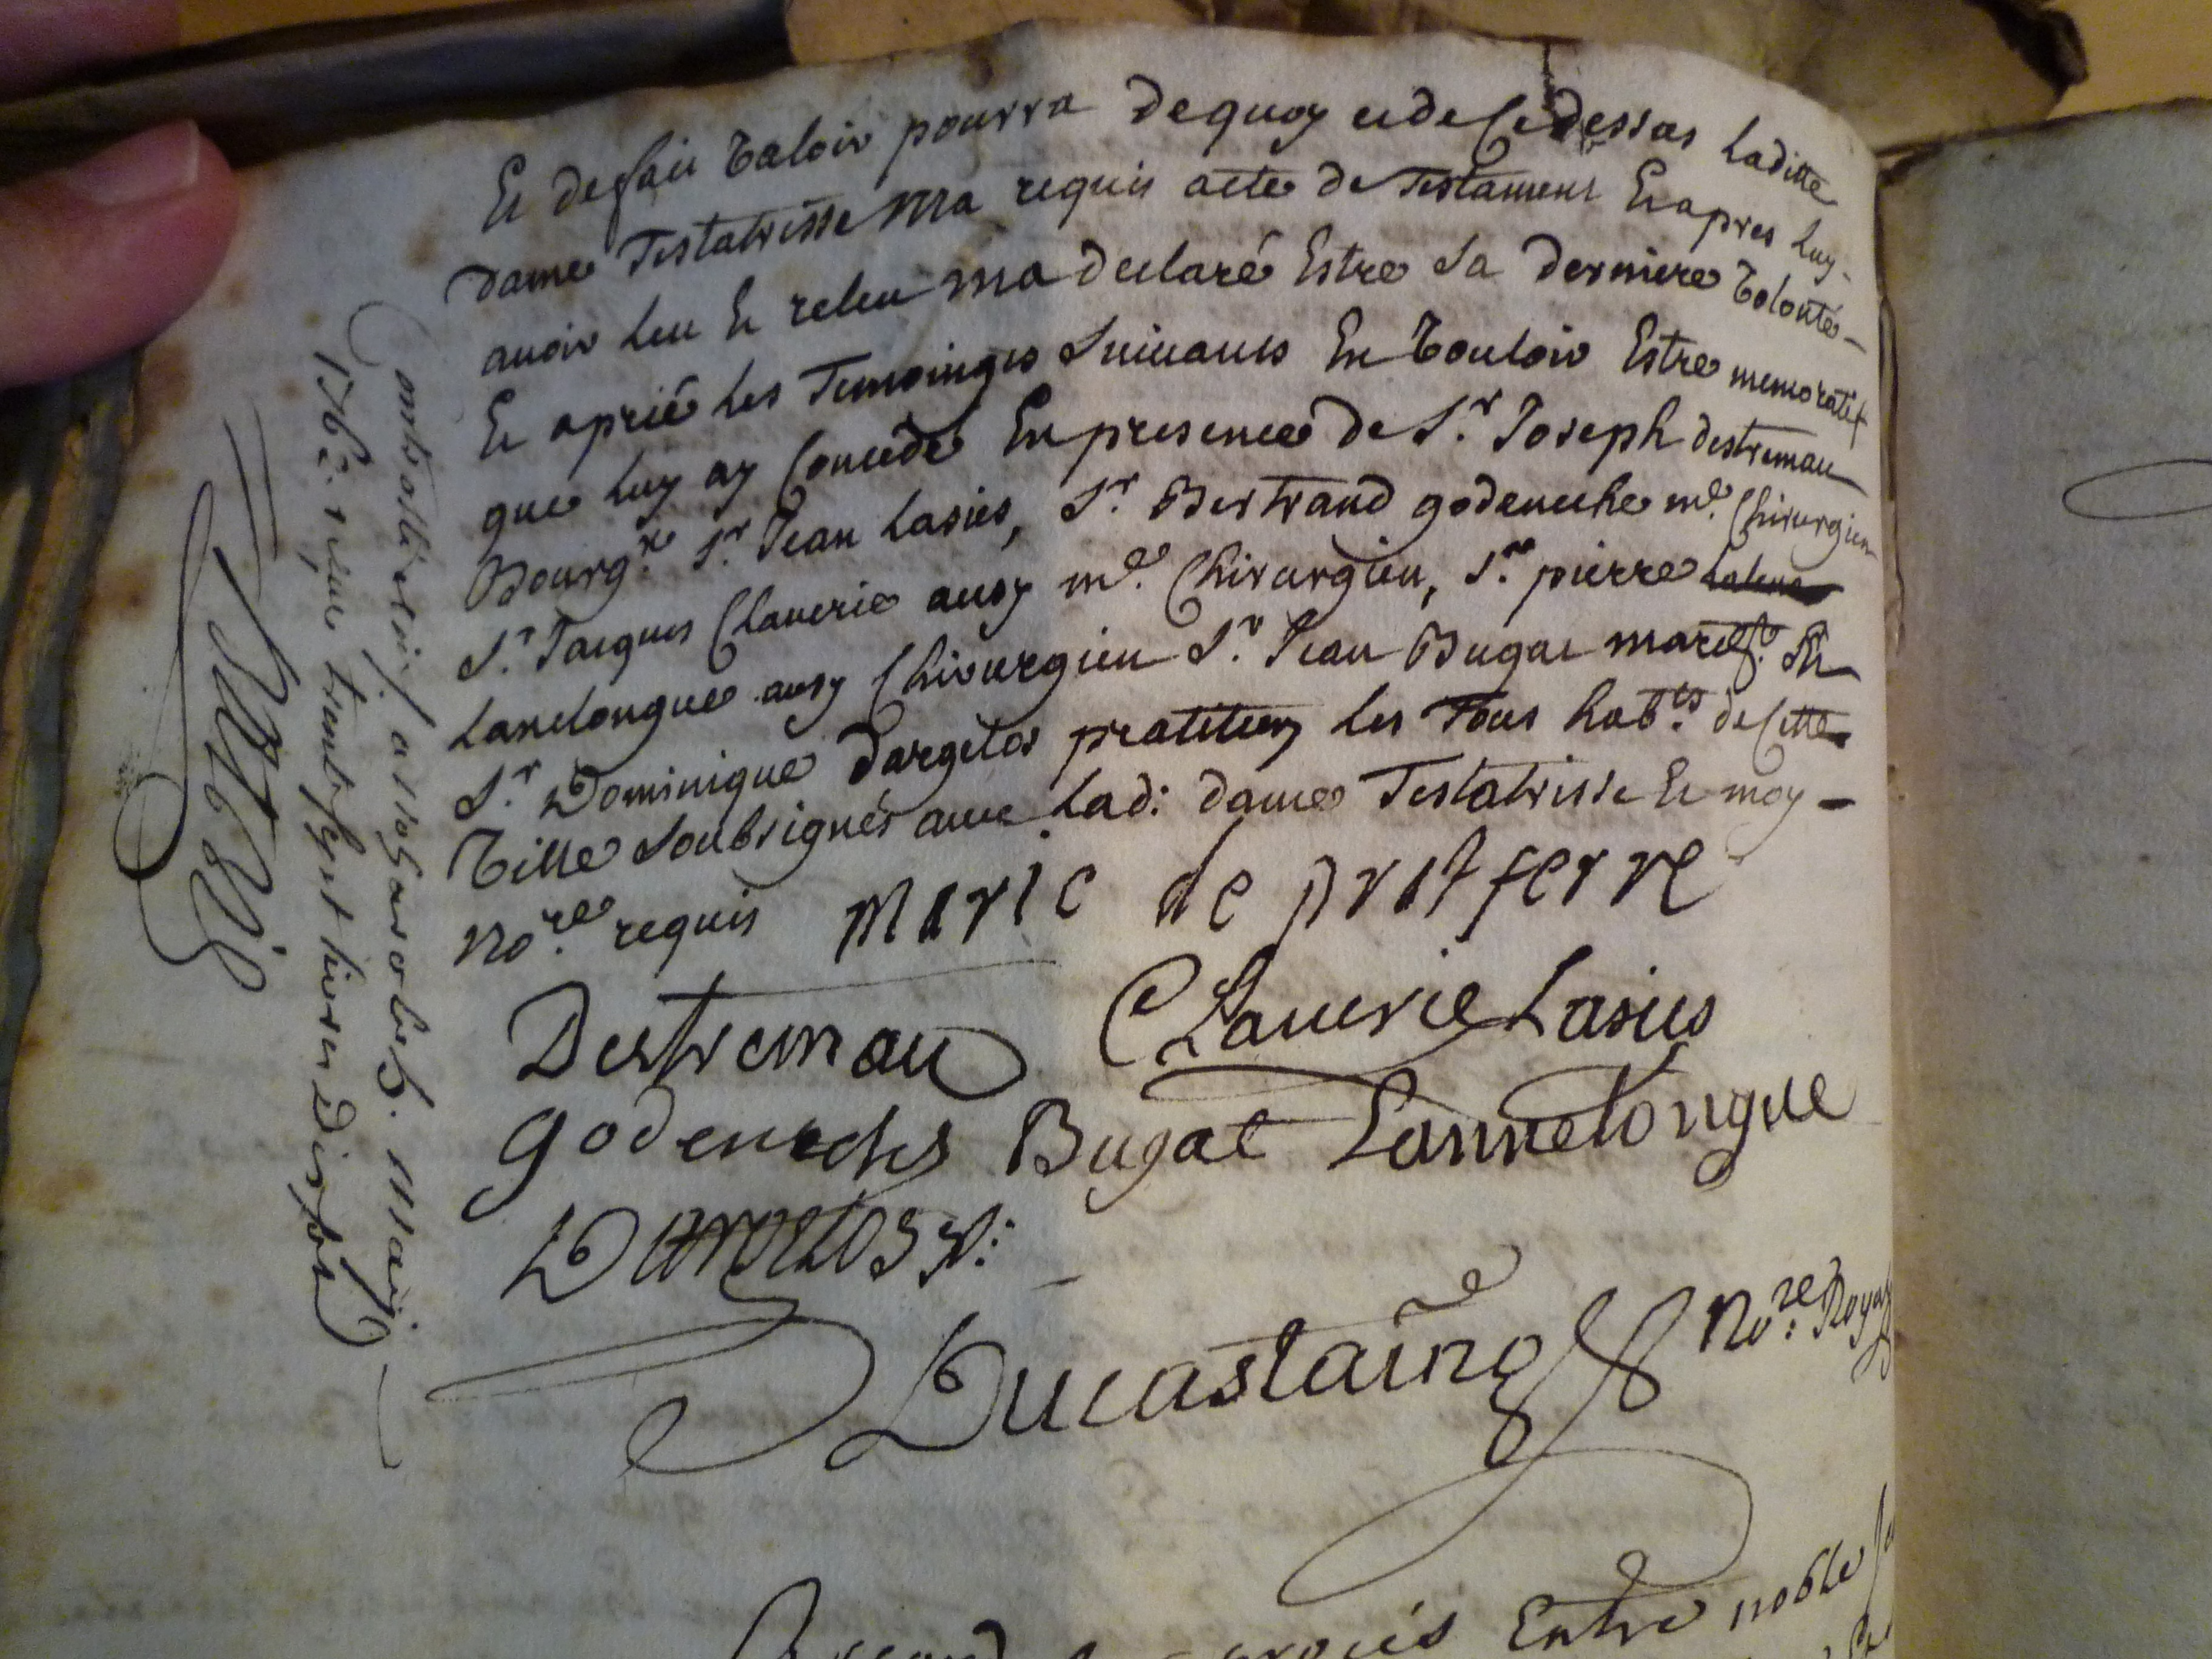 Et de fait valoir pourra de quoy et de ce dessus laditte
dame Testatrisse ma requis acte de Testament Et apres luy
avoir leu Et releu ma declaré Estre sa derniere volonté
Et a prié les Temoinges suivants En vouloir Estre memoratif
que luy ay Concedé En presence de Sr. Joseph destremau
Bourg.s Sr. Jean Lasies, Sr. Bertrand godeneche me. Chirurgien
Sr. Jacques Claverie ausy me. Chirurgien, Sr. pierre
Lanelongue ausy Chirurgien Sr. Jean Bugat Et
Sr. Dominique Dargelos pratitien les Tous habts. de Cette
ville soubsignés avec lad: dame Testatrisse Et moy
Nore. requis Marie de pratferre
Destremau Claverie Lasies
Godeneche Bugat Lannelongue
Dargelos
Ducastaing Nore. Royal
Entre noble
1762. reçu trente sept livres
may